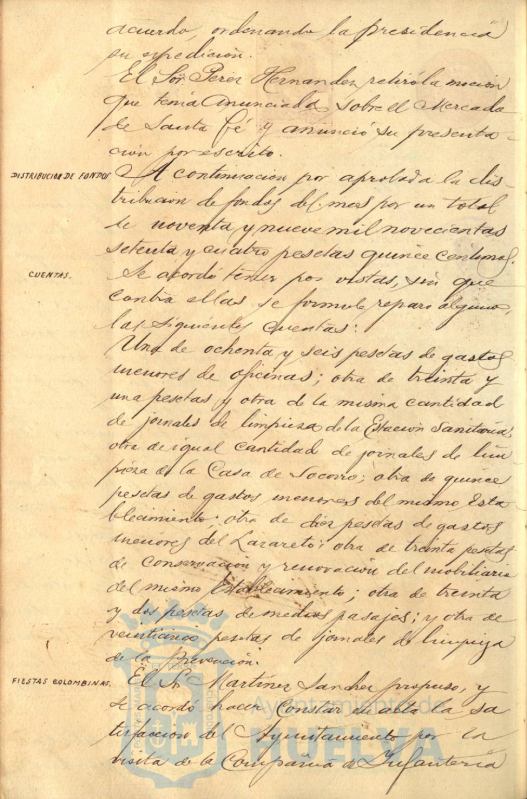 acuerdo, ordenando la presidencia
su expedición.
El Sor Perez Hernandez retiró la moción
que tenia anunciada sobre el Mercado
de Santa Fé y anunció su presenta-
ción por escrito.
DISTRIBUCION DE FONDOS
A continuación por aprobada la dis-
tribucion de fondos del mes por un total
de noventa y nueve mil novecientas
setenta y cuatro pesetas quince centimos.
CUENTAS.
Se acordó tener por vistas, sin que
contra ellas se formule reparo alguno,
las siguientes cuentas:
Una de ochenta y seis pesetas de gastos
menores de oficinas; otra de treinta y
una pesetas y otra de la misma cantidad
de jornales de limpieza de la Estación Sanitaria;
otra de igual cantidad de jornales de lim
pieza de la Casa de Socorro; otra de quince
pesetas de gastos menores del mismo Esta
blecimiento; otra de diez pesetas de gastos
menores del Lazareto; otra de treinta pesetas
de conservación y renovación del mobiliario
del mismo Establecimiento; otra de treinta
y dos pesetas de medios pasajes; y otra de
veinticinco pesetas de jornales de limpieza
de la Prevención.
FIESTAS COLOMBINAS.
El Sr Martinez Sanchez propuso, y
se acordó hacer constar en acta la sa
tisfacción del Ayuntamiento por la
visita de la Compañia de Infanteria
Ayuntamiento de
HUELVA